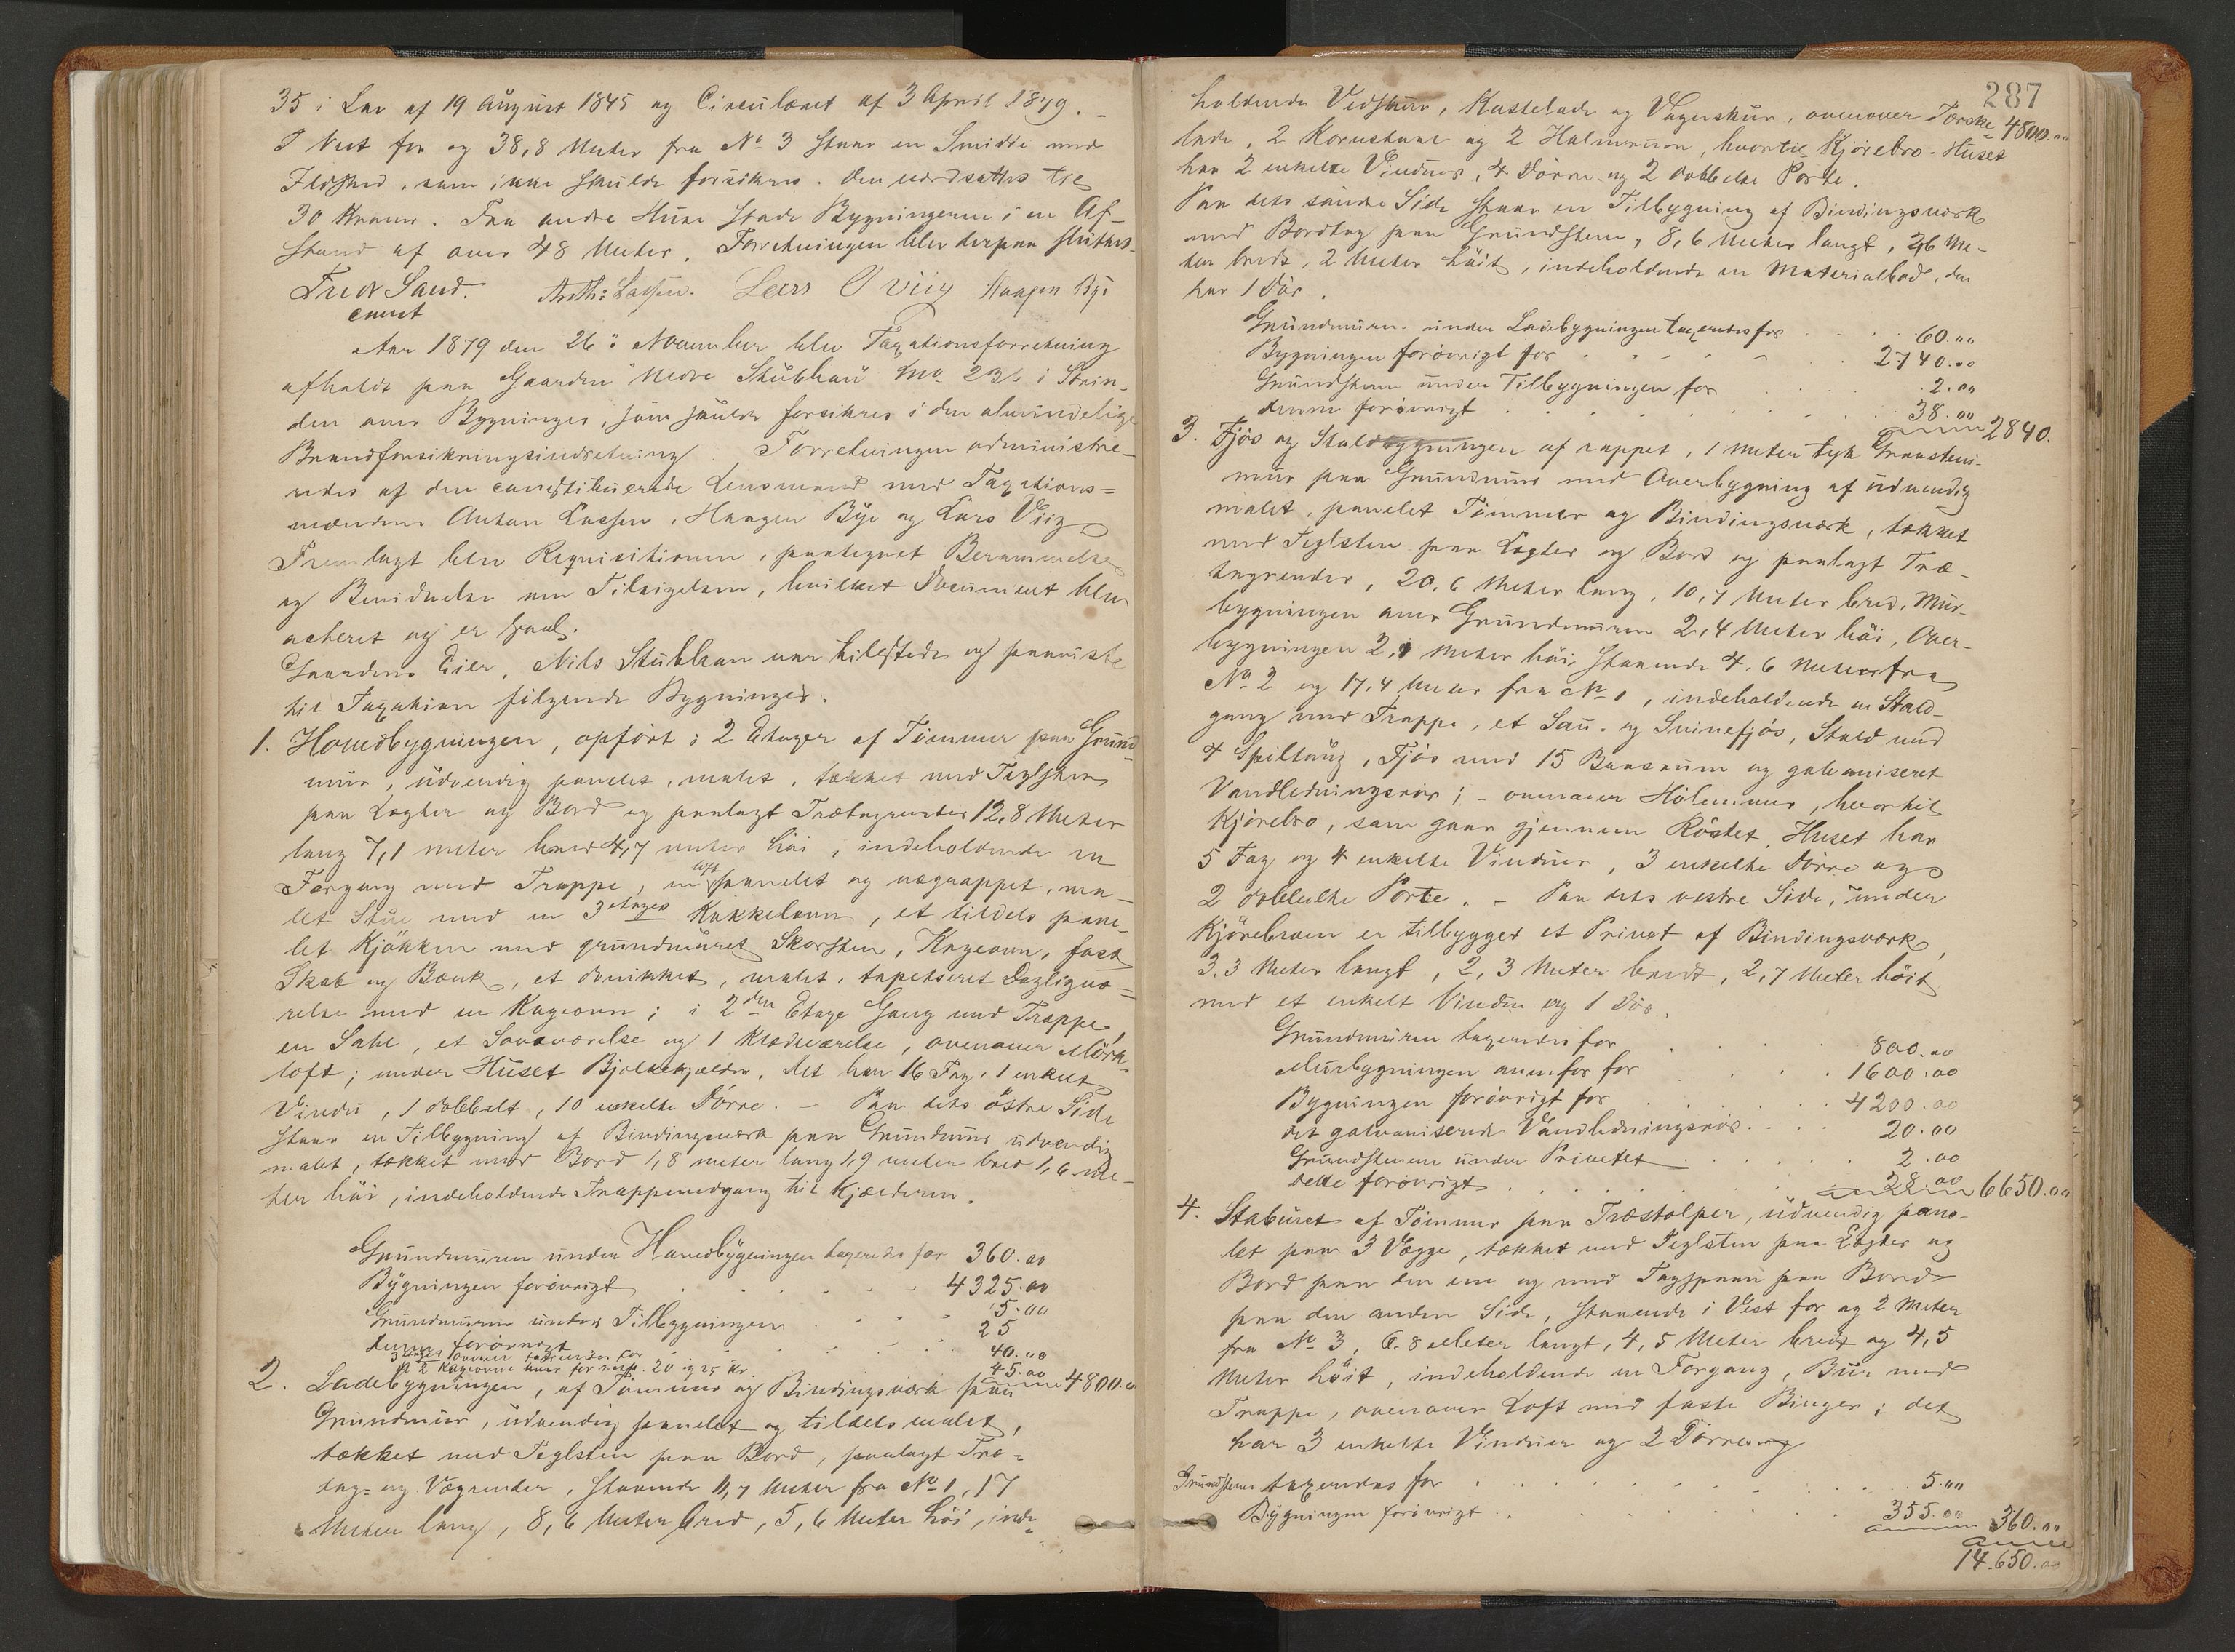 35 i Lov af 19 August 1845 og Circulæret af 3 April 1879. –
I Vest for og 38,8 Meter fra No 3 staar en Smidie med
Ildsted, som ikke skulde forsikres. Den værdsattes til
30 Kroner. Fra andre Huse stode Bygningerne i en Af-
stand af over 48 Meter. Forretningen blev derpaa sluttet.
Fredr Sand. Anth: Lassen. Lars O Viig Haagen Bye
const
Aar 1879 den 26: November blev Taxationsforretning
afholdt paa Gaarden Nedre Stubban i Strin-
den over Bygninger, som skulde forsikres i den almindelige
Brandforsikringsindretning. Forretningen administre-
redes af den constituerede Lensmand med Taxations=
mændene Anthon Lassen, Haagen Bye og Lars Viig
Fremlagt blev Requisitionen, paategnet Berammelse
og Bevidnelse om Tilsigelsen, hvilket Document blev
acteret og er saal.
Gaardens Eier, Nils Stubban var tilstede og paaviste
til Taxation følgende Bygninger.
1. Hovedbygningen, opført i 2 Etager af Tømmer paa Grund-
mur, udvendig panelet, malet, tækket med Teglsten
paa Lægter og Bord og paalagt Trætagrender 12,8 Meter
lang 7,1 meter bred 4,7 meter høi, indeholdende en
Forgang med Trappe, en loft panelet og vægrappet, ma-
let Stue med en 3 etages Kakkelovn, et tildels pane-
let Kjøkken med grundmuret Skorsten, Kogeovn, fast
Skab og Bænk, et malet, tapetseret Dagligvæ-
relse med en Kogeovn; i 2den Etage Gang med Trappe,
en Sahl, et Soveværelse og 1 Klædeværelse, ovenover Mörk-
loft; under Huset Bjelkekjælder. Det har 16 Fag, 1 enkelt
Vindu, 1 dobbelt, 10 enkelte Dörre. – Paa dets östre Side
staar en Tilbygning af Bindingsværk paa Grundmur udvendig
malet, tækket med Bord 1,8 meter lang 1,9 meter bred 1,6 me-
ter høi, indeholdende Trappenedgang til Kjælderen.
Grundmuren under Hovedbygningen taxeredes for 360.00
Bygningen forövrigt 4325.00
Grundmuren under Tilbygningen 5.00
denne forövrigt 25
3 etages ovnen taxeredes for 40.00
2 Kogeovne for resp. 20 og 25 Kr. 45.00 4800.00
2. Ladebygningen, af Tömmer og Bindingsværk paa
Grundmur, udvendig panelet og tildels malet,
tækket med Teglsten paa Bord, paalagt Træ=
tag= og Vægrender, staaende 11,7 Meter fra No 1, 17
Meter lang, 8,6 Meter bred, 5,6 Meter høi, inde-
287
holdende Vedskur, Kasselade og Vognskur, ovenover Tærske-4800.00
lade, 2 Kornstaal og 2 Halmrum, hvortil Kjörebro. Huset
har 2 enkelte Vinduer, 4 Dörre og 2 dobbelte Porte.
Paa dets söndre Side staar en Tilbygning af Bindingsværk
med Bordtag paa Grundstene, 8,6 Meter langt, 2,6 Me-
ter bredt, 2 Meter höit, indeholdende en Materialbod, den
har 1 Dör.
Grundmuren under Ladebygningen taxeredes for 60.00
Bygningen forövrigt for 2740.00
Grundstene under Tilbygningen for 2.00
denne forövrigt 38.00 2840.
3. Fjös og Staldbygningen af rappet, 1 Meter tyk Graasteins-
mur paa Grundmur med Overbygning af udvendig
malet, panelet Tömmer og Bindingsværk, tækket
med Teglsten paa Lægter og Bord og paalagt Træ-
tagrender, 20,6 Meter lang, 10,7 Meter bred, Mur-
bygningen over Grundmuren 2,4 Meter höi, Over-
bygningen 2, Meter höi, staaende 4,6 Meter fra
No 2 og 17,4 Meter fra No 1, indeholdende en Stald-
gang med Trappe, et Sau- og Svinefjös, Stald med
4 Spiltaug, Fjös med 15 Baasrum og galvaniseret
Vandledningsrör; – ovenover Hölemmer, hvortil
Kjörebro, som gaar gjennem Röstet. Huset har
5 Fag og 4 enkelte Vinduer, 3 enkelte Dörre og
2 dobbelte Porte. – Paa dets vestre Side, under
Kjörebroen er tilbygget et Privet af Bindingsværk,
3,3 Meter langt, 2,3 Meter bredt, 2,7 Meter höit
med et enkelt Vindu og 1 Dör.
Grundmuren taxeredes for 800.00
Murbygningen ovenfor for 1600.00
Bygningen forövrigt for 4200.00
det galvaniserede Vandledningsrör 20.00
Grundstenene under Privetet 2.00
dette forövrigt 28.00 6650.00
4. Staburet af Tömmer paa Træstolper, udvendig pane-
let paa 3 Vægge, tækket med Teglsten paa Lægter og
Bord paa den ene og med Tagspaan paa Bord
paa den anden Side, staaende i Vest for og 2 Meter
fra No 3, 6.8 Meter langt, 4,5 Meter bredt og 4,5
Meter höit, indeholdende en Forgang, Bur med
Trappe, ovenover Loft med faste Binger; det
har 3 enkelte Vinduer og 2 Dörre
Grundstene taxeredes for 5.00
Bygningen forövrigt 355.00 360.00
14.650.00